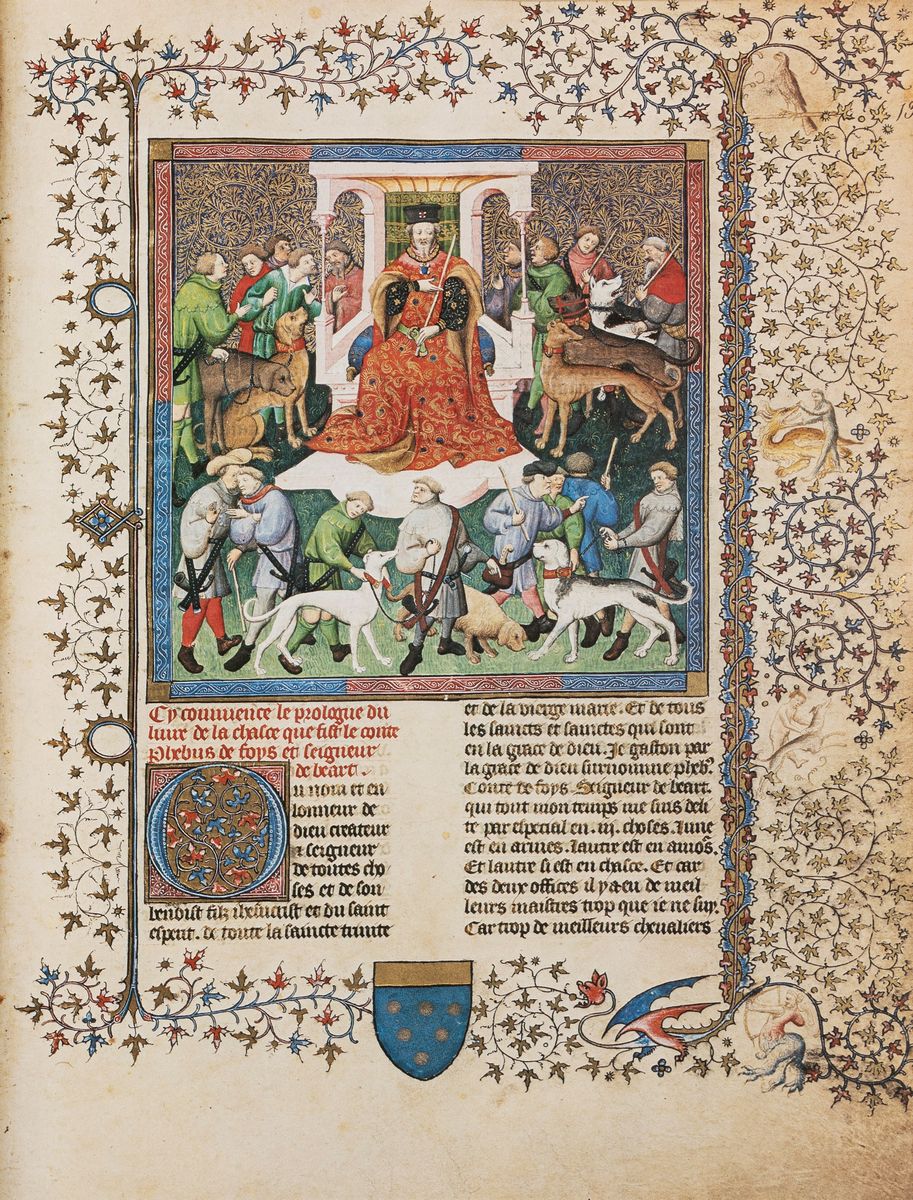 Cy commence le prologue du
liure de la chasce que fist le conte
Phebus de foys et seigneur
de beart.
Ou nom et en
lonneur de
dieu createur
& seigneur
de toutes cho
ses et de son
benoist filz ihesucrist et du saint
esperit. de toute la saincte trinite
et de la vierge marie. Et de tous
les saincts et sainctes qui sont
en la grace de dieu. Je gaston par
la grace de dieu surnomme pheb9.
Conte de foys. Seigneur de beart.
qui tout mon temps me suis deli
te par especial en .iij. choses. lune
est en armes. lautre est en amo9s.
Et lautre si est en chasce. Et car
des deux offices il y a eu de meil
leurs maistres trop que ie ne suy.
Car trop de meilleurs cheualiers